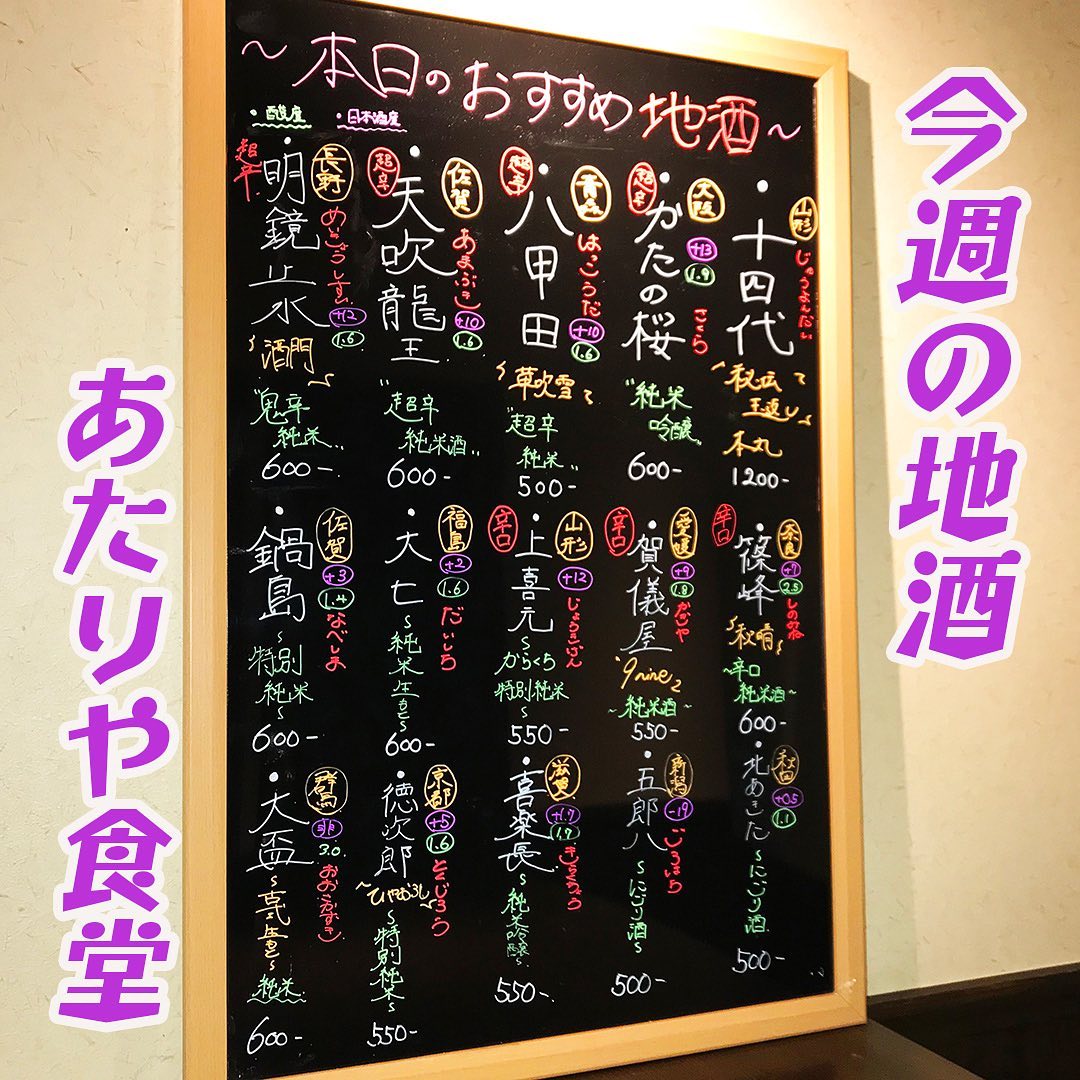 今週の地酒
あたりや食堂
〜本日のおすすめ地酒〜
・酸度
・日本酒度
山形
・十四代
じゅうよんだい
秘伝
玉返し
本丸
1200-
大阪
超辛
・かたの桜
+13
1.9
さくら
"純米
吟醸"
600-
青森
超辛
・八甲田
はっこうだ
+10
1.6
草吹雪
"超辛
純米"
500-
佐賀
超辛
・天吹龍王
あまぶき
+10
1.6
"超辛
純米酒"
600-
長野
超辛
・明鏡止水
+12
1.6
酒門
"鬼辛
純米"
600-
奈良
辛口
・篠峰
+7
2.5
しのみね
秋晴
〜辛口
純米酒〜
600-
愛媛
辛口
・賀儀屋
+9
1.8
かぎや
9nine
〜純米酒〜
550-
山形
辛口
・上喜元
+12
じょうきげん
〜からくち
特別純米〜
550-
福島
・大七
+2
1.6
だいしち
〜純米生もと〜
600-
佐賀
・鍋島
+3
1.4
なべしま
〜特別
純米〜
600-
秋田
・北あきた
+0.5
1.1
〜にごり酒〜
500-
新潟
・五郎八
-19
ごろはち
〜にごり酒〜
500-
滋賀
・喜楽長
+1.7
1.7
きらくちょう
〜純米吟醸〜
550-
京都
・徳次郎
+5
1.6
とくじろう
〜ひやおろし〜
〜特別純米〜
550-
群馬
・大盃
非
3.0
おおさかずき
純米
600-